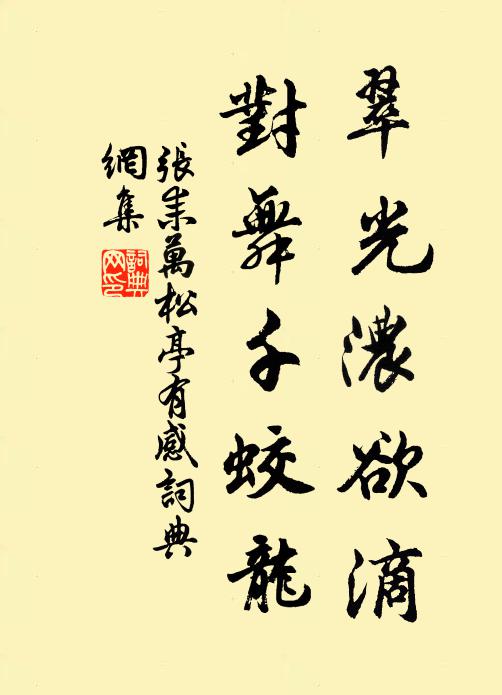 翠光濃欲滴
對舞千蛟龍
張耒萬松亭有感詞典
網集
詞典
网印